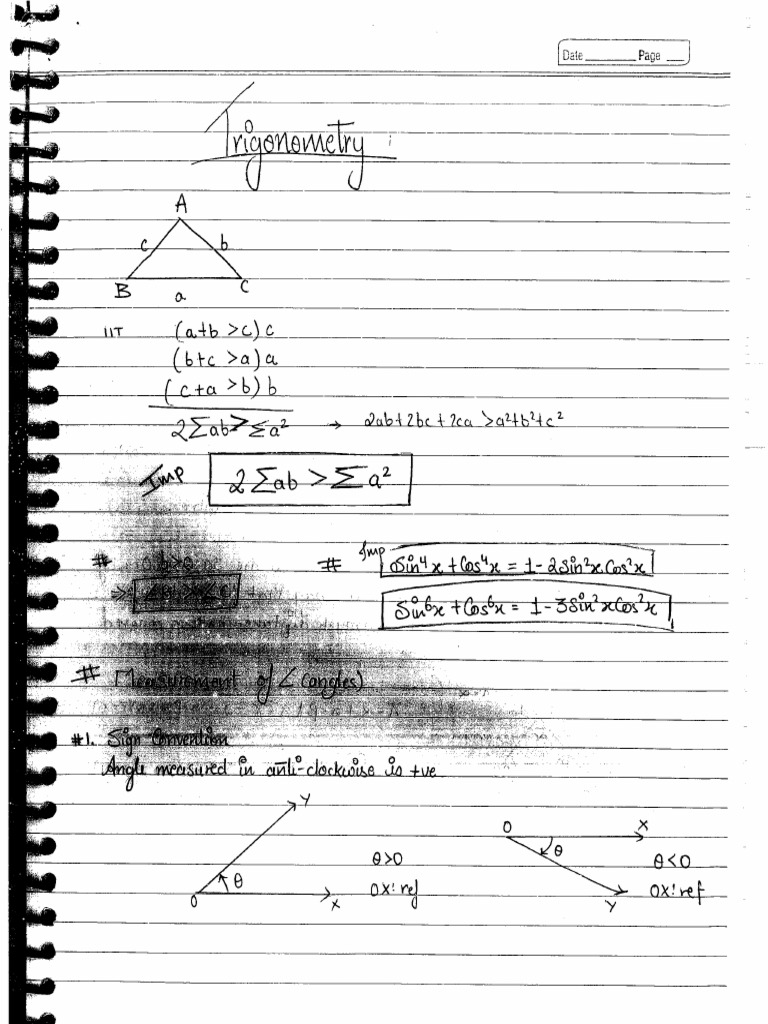 Date ________ Page ___
Trigonometry :
A
c b
B a C
IIT (a+b >c) c
(b+c >a) a
(c+a >b) b
2Σab > Σa² → 2ab+2bc+2ca >a²+b²+c²
Imp 2 Σab > Σ a²
# # Imp Sin⁴x + Cos⁴x = 1 - 2Sin²x.Cos²x
Sin⁶x + Cos⁶x = 1 - 3Sin²xCos²x
# Measurement of ∠ (angles)
#1. Sign Convention
Angle measured in anti-clockwise is +ve
Y
O X
θ>0 θ θ<0
θ OX: ref Y OX: ref
O X